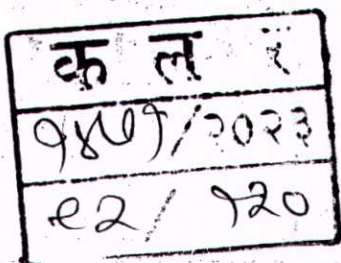 क ल र
१४७१/२०२३
९२/१२०